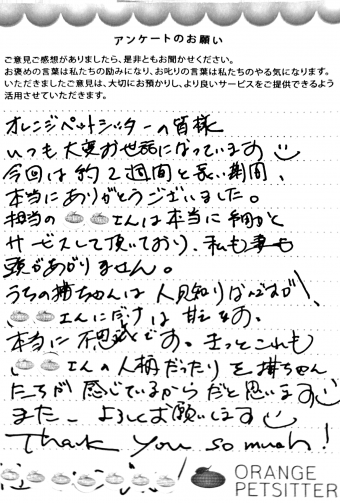 アンケートのお願い
ご意見ご感想がありましたら、是非ともお聞かせください。
お褒めの言葉は私たちの励みになり、お叱りの言葉は私たちのやる気になります。
いただきましたご意見は、大切にお預かりし、より良いサービスをご提供できるよう
活用させていただきます。
オレンジペットシッターの皆様
いつも大変お世話になっています
今回は約2週間と長い期間、
本当にありがとうございました。
担当の さんは本当に細かく
サービスして頂いており、私も妻も
頭があがりません。
うちの猫ちゃんは人見知りなんですが、
さんにだけは甘えます。
本当に不思議です。きっとこれも
さんの人柄だったりを猫ちゃん
たちが感じているからだと思います
また、よろしくお願いします
Thank you so much!
ORANGE
PETSITTER